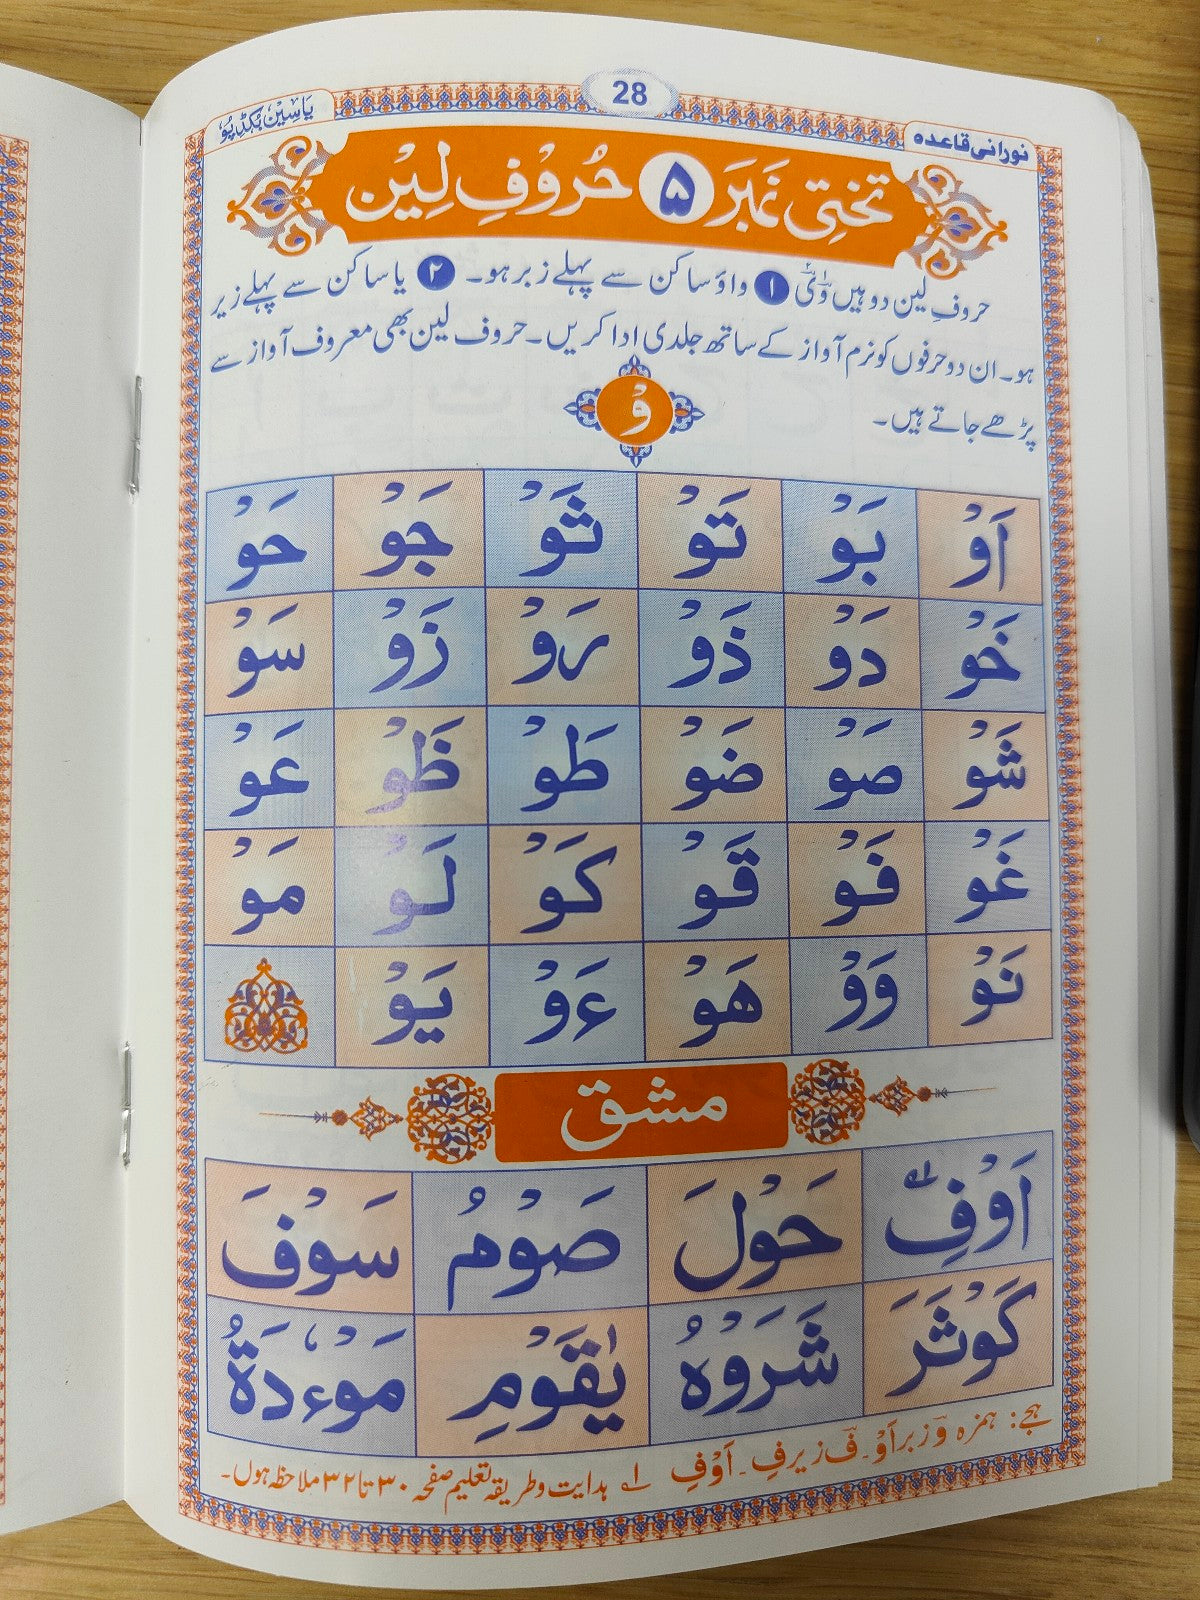 نورانی قاعدہ 28 یاسین بکڈپو
تختی نمبر ۵ حُرُوْفِ لِیْن
حروفِ لین دو ہیں وْ یْ ۱ واؤ ساکن سے پہلے زبر ہو۔ ۲ یا ساکن سے پہلے زبر
ہو۔ ان دو حرفوں کو نرم آواز کے ساتھ جلدی ادا کریں۔ حروف لین بھی معروف آواز سے
پڑھے جاتے ہیں۔
وْ
اَوْ بَوْ تَوْ ثَوْ جَوْ حَوْ
خَوْ دَوْ ذَوْ رَوْ زَوْ سَوْ
شَوْ صَوْ ضَوْ طَوْ ظَوْ عَوْ
غَوْ فَوْ قَوْ كَوْ لَوْ مَوْ
نَوْ وَوْ هَوْ ءَوْ يَوْ
مشق
اَوْفِ حَوْلَ صَوْمُ سَوْفَ
كَوْثَرَ شَرَوْهُ يٰقَوْمِ مَوْءٗدَةُ
ہجے: ہمزہ وٓ زبر اَوْ۔ فٓ زیر فِ۔ اَوْفِ ۱؎ ہدایت و طریقہ تعلیم صفحہ ۳۰ تا ۳۲ ملاحظہ ہوں۔